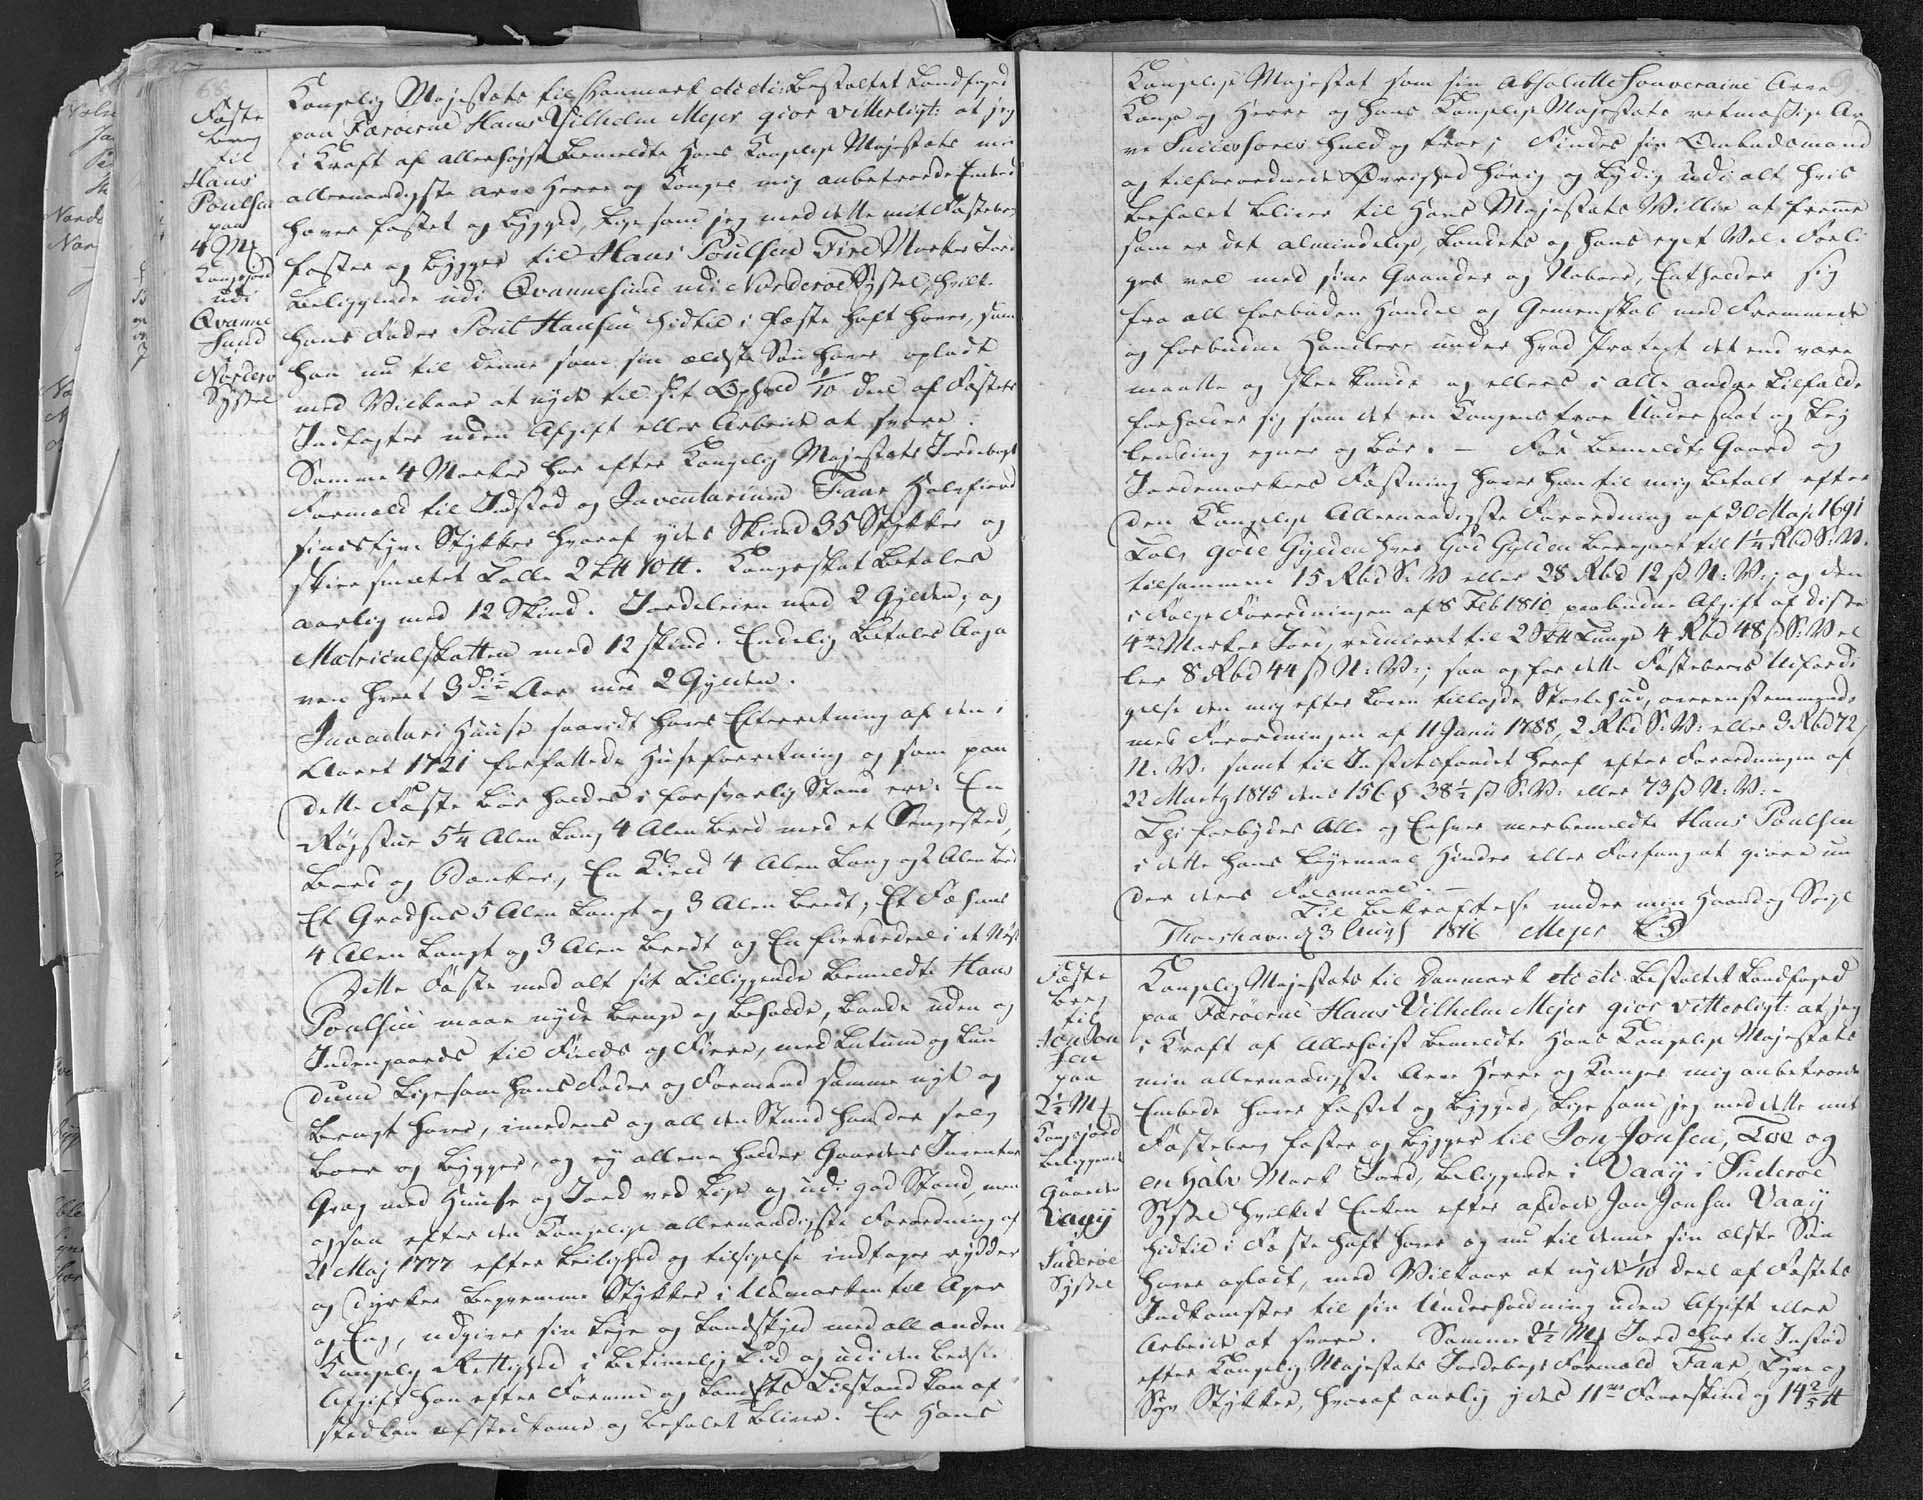 68.
Fæste
brev
til
Hans
Poulsen
paa
4 Mk
Kongsjord
udi
Qvanne
sund
Norderø
Syssel
Kongelig Majestæts til Danmark etc etc: Bestaltet Landfoged
paa Færöerne Hans Vilhelm Mejer giör vitterligt: at jeg
i Kraft af allerhöjst bemeldte Hans Kongelige Majestæts min
allernaadigste Arve Herre og Konges mig anbetroede Embed
haver fæstet og bygged, lige som jeg med dette mit Fæstebrev
fæster og bygger til Hans Poulsen Fire Marker Jord
beliggende udi Qvannesund udi Norderöe Syssel, hvilke
hans Fader Poul Hansen hidtil i Fæste haft haver, som
han nu til denne som sin ældste Sön haver opladt
med Vilkaar at nyde til sit Ophold 1/10 Deel af Fæstets
Indtægter uden Afgift eller Arbeide at svare.
Samme 4 Marker har efter Kongelig Majestæts Jordebogs
Formeld til Indstæd og Inventarium Faar Halvfierd
sindstyve Stykker hvoraf ydes Skind 35 Stykker og
skier smeltet Talle 2 L℔ 10 ℔. Kongsskat betales
aarlig med 12 Skind. Jordeleien med 2 Gylden, og
Matriculskatten med 12 skind. Endelig betales Aaga
ven hvert 3die Aar med 2 Gylden.
Invadari Huuse saavidt haves Efterretning af den i
Aaret 1721 forfattede Huseforretning og som paa
dette Fæste bör holdes i forsvarlig Stand ere: En
Rögstue 5¼ Alen Lang 4 Alen bred med et Sengested,
Bord og Bænker, En Kield 4 Alen Lang og 2 Alen bred
Et Gradhus 5 Alen Langt og 3 Alen Bredt, Et Fæhuus
4 Alen Langt og 3 Alen bredt og En fierdedeel i et Nöst
Dette Fæste med alt sit Tilliggende bemeldte Hans
Poulsen maae nyde bruge og beholde, baade uden og
Indengaards til Fields og Fiære, med Lutum og Lun
dum ligesom hans Fader og Formand samme nyt og
brugt haver, imedens og all den Stund han der selv
boer og bygger, og ey allene holder Gaardens Inventar
Grag med Huuse og Jord ved Lige og udi god Stand, men
ogsaa efter den Kongelige allernaadigste Forordning af
21 Maj 1777 efter Leilighed og tilsigelse indtager rydder
og dyrker beqvemme Stykker i Udmarken til Ager
og Eng, udgiver sin Leje og Landskyld med all anden
Kongelig Rettighed i betimelig Tid og udi den bedste
Afgift han efter Formue og Landets Tilstand kan af
sted kan afstedkome og befalet bliver. Er Hans
Kongelige Majestæt som sin Absolutte Souveraine Arve
Konge og Herre og Hans Kongelige Majestæts retmæssige Ar
ve Successorer huld og troe; Findes sin Ombudsmand
og tilforordnede Övrighed hörig og lydig udi alt hvis
befalet bliver til Hans Majestæts Villie at fremme
som er det almindelige, Landets og hans eget Vel. Forli
ges vel med sine Grander og Naboer, Entholder sig
fra all forbuden Handel og Gemenskab med Fremmede
og forbudne Handlere under hvad Protext det end være
maatte og skee kunde og ellers i alle andre tilfælde
forholder sig som det en Kongens troe Undersaat og Ley
lending egner og bör. — For bemeldte Gaard og
Jordemarkers Fæstning haver han til mig betalt efter
den Kongelige Allernaadigste Forordning af 30 Maj 1691
Tolv gode Gylden hver God Gylden beregnet til 1¼ Rbd S: V.
tilsammen 15 Rbd S: V eller 28 Rbd 12 ß N: V:; og den
i Fölge Forordningen af 8 Feb 1810 paabudne Afgift af disse
4re Marker Jord, reduceret til 2 Skt Tunge 4 Rbd 48 ß S: V el
ler 8 Rbd 44 ß N: V:; saa og for dette Fæstebrevs Udfærdi
gelse den mig efter Loven tillagde Stadehud, overenstemmende
med Forordningen af 11 Janii 1788, 2 Rbd S: V: eller 3 Rbd 72,
N. V. samt til Justitsfondet heraf efter Forordningen af
22 Marty 1815 dens 156 § 38½ ß S: V: eller 73 ß N: V: -
Thi forbydes Alle og Enhver merbemeldte Hans Poulsen
i dette hans Leyemaal Hinder eller Forfang at giöre un
der dens Falsmaal. —
Til bekræftelse under min Haand og Seigl
Thorshavn d 3 Augs 1816 Mejer LS
Fæste
brev
til
Jon Jon
sen
paa
2½ Mk
Kongsjord
beliggende
Gaarden
Vaay
i
Suderöe
Syssel
Kongelig Majestæts til Danmark etc etc: Bestaltet Landfoged
paa Færöerne Hans Vilhelm Mejer giör vitterligt: at jeg
i Kraft af Allerhöist bemeldte Hans Kongelige Majestæts
min allernaadigste Arve Herre og Konges mig anbetroede
Embede haver fæstet og bygged, lige som jeg med dette mit
Fæstebrev fæster og bygger til Jon Jonsen, Toe og
en halv Mark Jord, beliggende i Vaaÿ i Suderöe
Syssel hvilket Enken efter afdöde Jon Jonsen Vaaÿ
hidtil i Fæste haft haver og nu til denne sin ælste Sön
haver opladt, med Vilkaar at nyde 1/10 deel af Fæstets
Indkomster til sin Underholdning uden Afgift eller
Arbeide at svare. Samme 2½ Mk Jord har til Instæd
efter Kongelig Majestæts Jordebogs Formeld Faar Tyve og
Syv Stykker, hvoraf aarlig ydes 11ve Faareskind og 14⅖ ℔